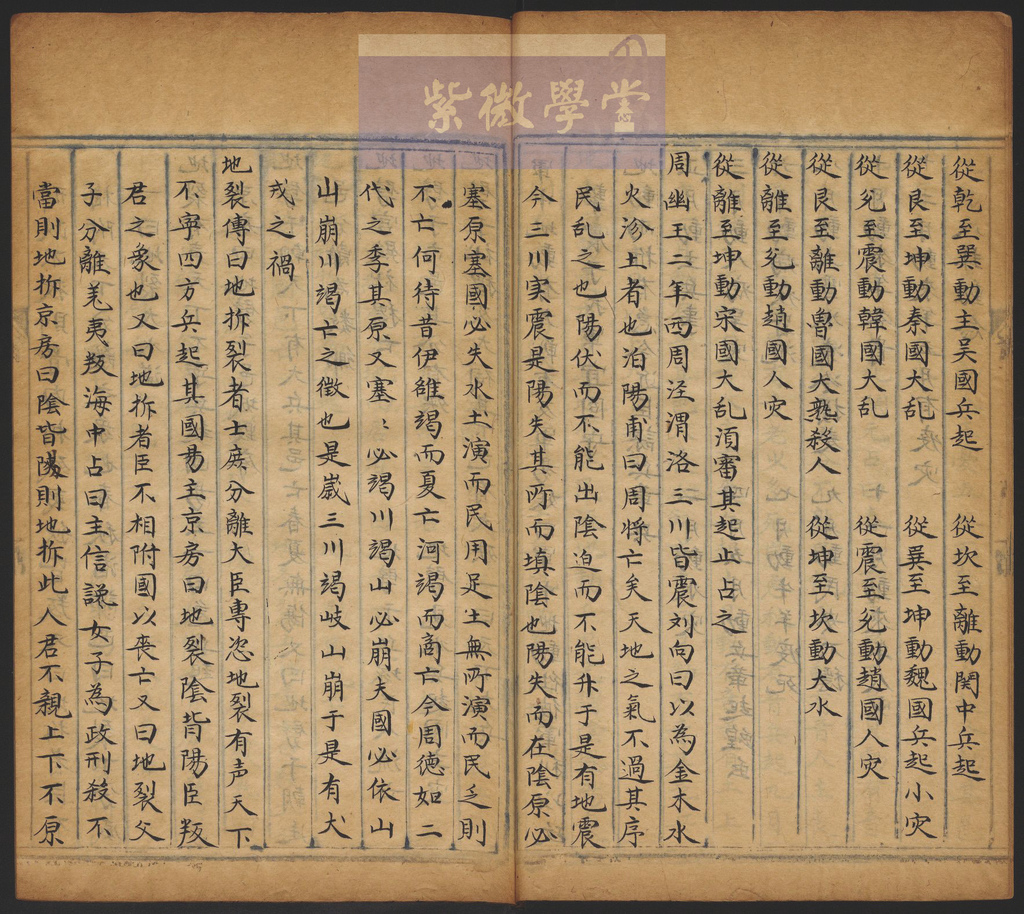 紫微學堂
從乾至巽動主吴國兵起　從坎至離動関中兵起
從艮至坤動秦國大乱　從巽至坤動魏國兵起小灾
從兊至震動韓國大乱　從震至兊動趙國人灾
從艮至離動魯國大熱殺人　從坤至坎動大水
從離至兊動趙國人灾
從離至坤動宋國大乱須審其起止占之
周幽王二年西周泾渭洛三川皆震刘向曰以為金木水
火沴土者也泊陽甫曰周將亡矣天地之氣不過其序
民乱之也陽伏而不能出陰迫而不能升于是有地震
今三川实震是陽失其所而填陰也陽失而在陰原必
塞原塞國必失水土演而民用足土無所演而民乏則
不亡何待昔伊維竭而夏亡河竭而商亡今周德如二
代之季其原又塞〻必竭川竭山必崩夫國必依山
山崩川竭亡之徵也是嵗三川竭岐山崩于是有犬
戎之禍
地裂傳曰地拆裂者士庻分離大臣專恣地裂有声天下
不寧四方兵起其國昜主京房曰地裂陰背陽臣叛
君之象也又曰地拆者臣不相附國以喪亡又曰地裂父
子分離羌夷叛海中占曰主信讒女子為政刑殺不
當則地拆京房曰陰背陽則地拆此人君不親上下不原